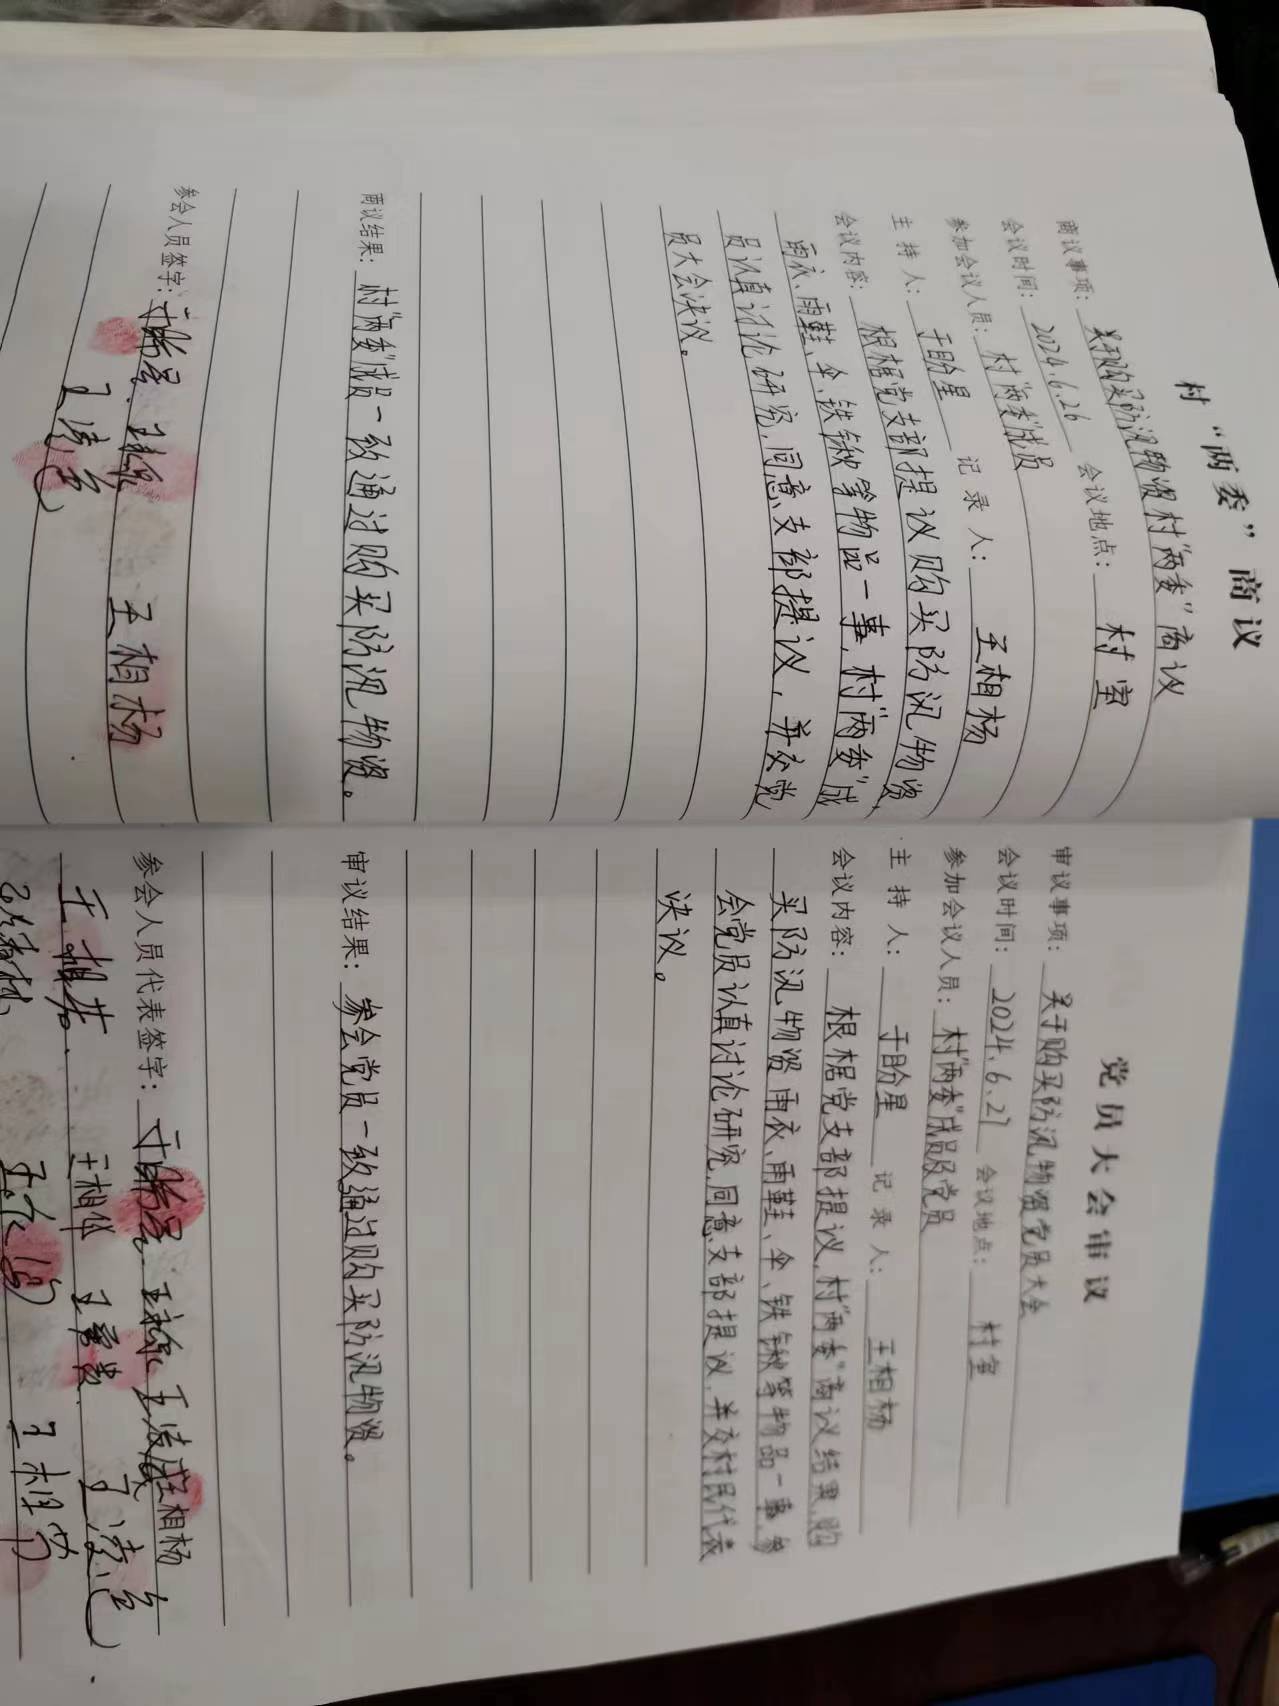 村“两委”商议
商议事项：关于购买防汛物资村“两委”商议
会议时间：2024.6.26 会议地点：村室
参加会议人员：村“两委”成员
主持人：于盼星 记录人：王相杨
会议内容：根据党支部提议购买防汛物资
雨衣、雨鞋、伞、铁锹等物品一事，村“两委”成
员认真讨论研究，同意支部提议，并交党
员大会决议。
商议结果：村“两委”成员一致通过购买防汛物资。
参会人员签字：于盼星
王相杨
党员大会审议
审议事项：关于购买防汛物资党员大会
会议时间：2024.6.27 会议地点：村室
参加会议人员：村“两委”成员及党员
主持人：于盼星 记录人：王相杨
会议内容：根据党支部提议，村“两委”商议结果，购
买防汛物资雨衣、雨鞋、伞、铁锹等物品一事，参
会党员认真讨论研究，同意支部提议，并交村民代表
决议。
审议结果：参会党员一致通过购买防汛物资。
参会人员代表签字：于盼星 王相杨